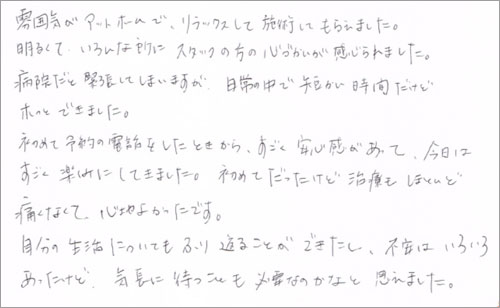 雰囲気がアットホームで、リラックスして施術してもらえました。
明るくて、いろんな所にスタッフの方の心づかいが感じられました。
病院だと緊張してしまいますが、日常の中で短かい時間だけど
ホッとできました。
初めて予約の電話をしたときから、すごく安心感があって、今日は
すごく楽しみにしてきました。初めてだったけど治療もほとんど
痛くなくて、心地よかったです。
自分の生活についてもふり返ることができたし、不安はいろいろ
あったけど、気長に待つことも必要なのかなと思えました。